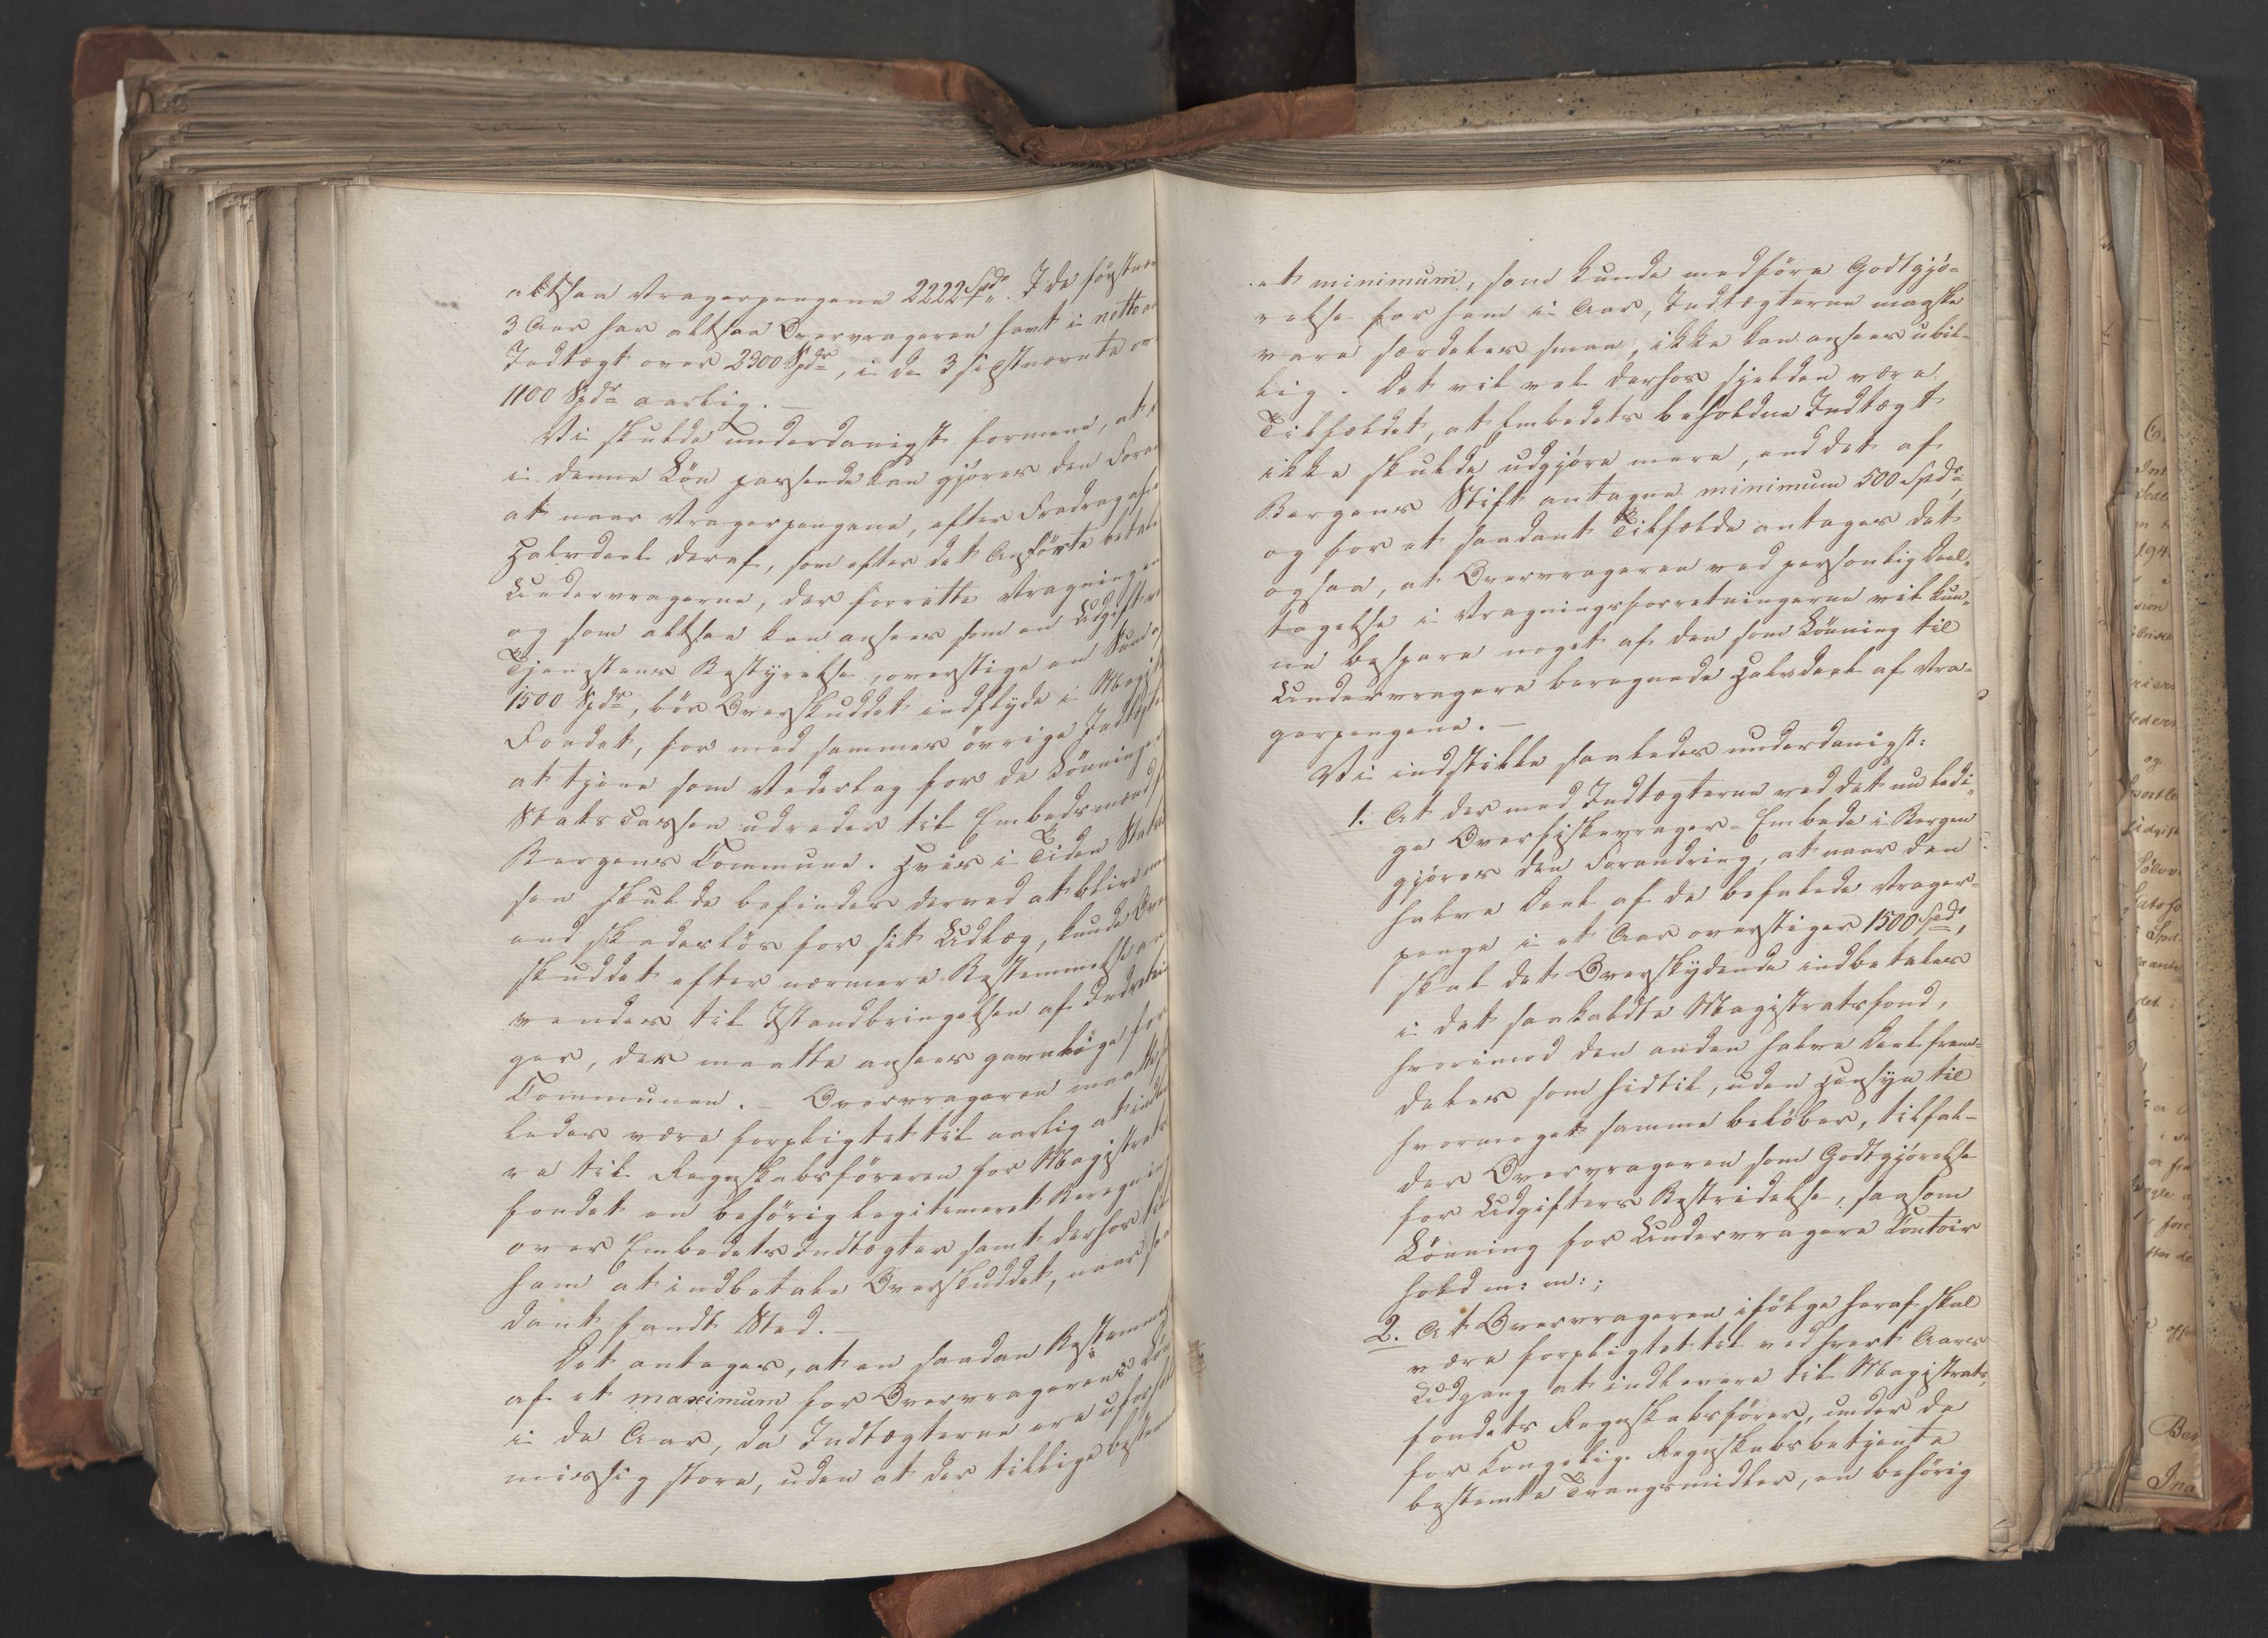 altsaa Vragerpengene 2222 Spdr. I de förstnæv
3 Aar har altsaa Overvrageren havt i netto aa
Indtægt over 2300 Spdr, i de 3 sidstnævnte ov
1100 Spdr aarlig. –
Vi skulde underdanigst formene, at
i denne Lön passende kan gjöres den Foran
at naar Vragerpengene, efter Fradrag af
Halvdeel deraf, som efter det Anförte betale
Undervragerne, der forrette Vragningen
og som altsaa kan ansees som en Udgift ve
Tjenestens Bestyrelse, overstige en Sum af
1500 Spdr, bör Overskuddet indflyde i Magist
Fondet, for med sammes övrige Indtægte
at tjene som Vederlag for de Lönninger
Statscassen udreder til Embedsmænd f
Bergens Commune. Hvis i Tiden Statsca
sen skulde befindes derved at blive me
end skadeslös for sit Udlæg, kunde Over
skuddet efter nærmere Bestemmelse an
vendes til Istandbringelsen af Indretnin
ger, der maatte ansees gavnlige for
Communen. – Overvrageren maatte saa
ledes være forpligtet til aarlig at indle
re til Regnskabsföreren for Magistrats
fondet en behörig legitimeret Beregning
over Embedets Indtægter samt derhos til
ham at indbetale Overskuddet, naar saa
dant fandt Sted. –
Det antages, at en saadan Bestemmel
af et maximum for Overvragerens Lön
i de Aar, da Indtægterne ere uforhol
mæssig store, uden at der tillige bestem
et minimum, som kunde medföre Godtgjö-
relse for ham i Aar, Indtægterne maaske
vare særdeles smaa, ikke kan ansees ubil-
lig. Det vil vel derhos sjelden være
Tilfældet, at Embedets beholdne Indtægt
ikke skulde udgjöre mere, end det af
Bergens Stift antagne minimum 500 Spdr,
og for et saadant Tilfælde antages det
ogsaa, at Overvrageren ved personlig Deel-
tagelse i Vragningsforretningerne vil kun-
ne bespare noget af den som Lönning til
Undervragere beregnede Halvdeel af Vra-
gerpengene. –
Vi indstille saaledes underdanigst:
1. At der med Indtægterne ved det nu ledi-
ge Overfiskevrager-Embede i Bergen
gjöres den Forandring, at naar den
halve Deel af de befalede Vrager-
penge i et Aar overstiger 1500 Spdr,
skal det Overskydende indbetales
i det saakaldte Magistratsfond,
hvorimod den anden halve Deel frem-
deles som hidtil, uden Hensyn til
hvormeget samme belöber, tilfal-
der Overvrageren som Godtgjörelse
for Udgifters Bestridelse, saasom
Lönning for Undervragere Contoir
hold m: m:;
2. At Overvrageren ifölge heraf skal
være forpligtet til ved hvert Aars
Udgang at indlevere til Magistrats-
fondets Regnskabsförer, under de
for Kongelige Regnskabsbetjente
bestemte Tvangsmidler, en behörig